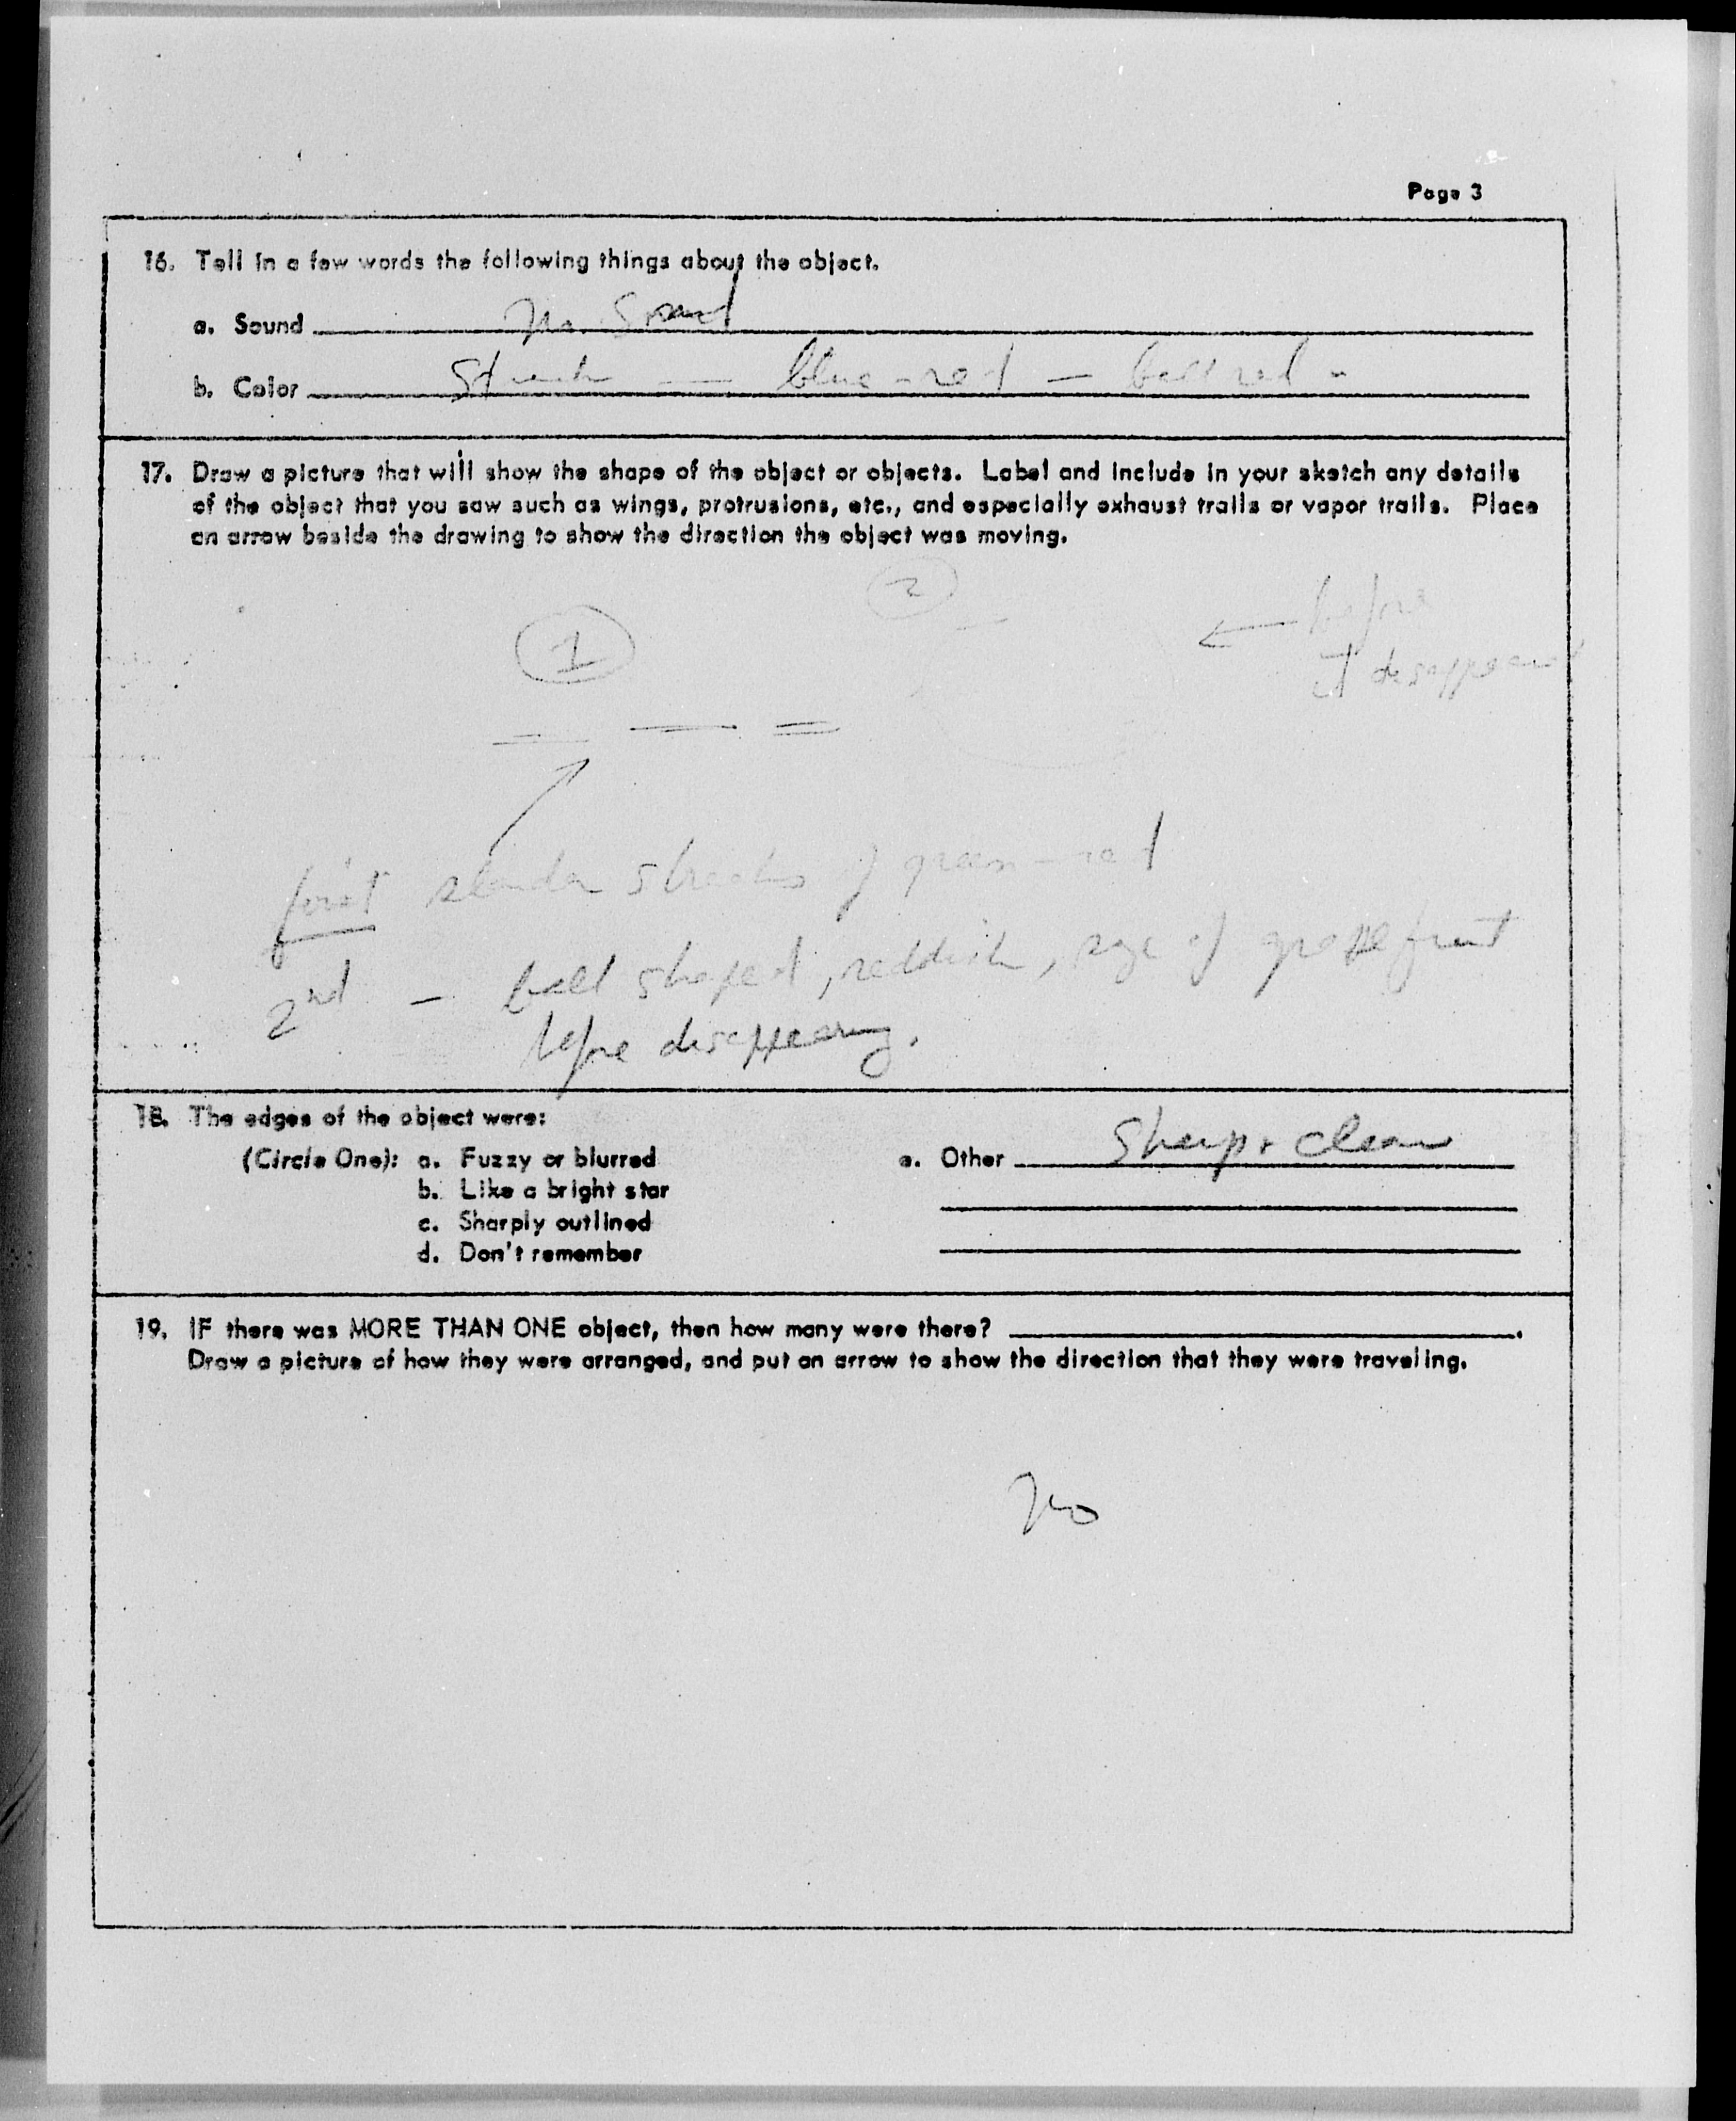 Page 3
16. Tell in a few words the following things about the object.
a. Sound No Sound
b. Color Streak — blue-red — ball red -
17. Draw a picture that will show the shape of the object or objects. Label and include in your sketch any details
of the object that you saw such as wings, protrusions, etc., and especially exhaust trails or vapor trails. Place
an arrow beside the drawing to show the direction the object was moving.
2
1
before
it disappeared
first slender streaks of green-red
2nd - ball shaped, reddish, size of grapefruit
before disappearing.
18. The edges of the object were:
(Circle One): a. Fuzzy or blurred
b. Like a bright star
c. Sharply outlined
d. Don't remember
e. Other Sharp + clear
19. IF there was MORE THAN ONE object, then how many were there? .
Draw a picture of how they were arranged, and put an arrow to show the direction that they were traveling.
No